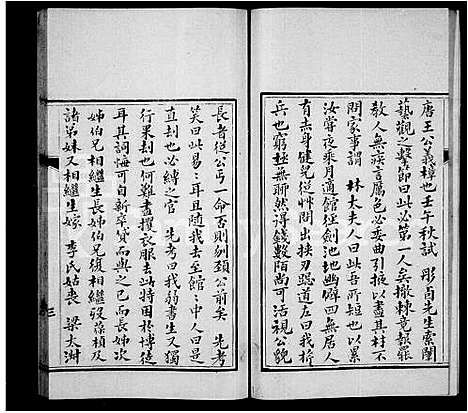 唐王公義樟也壬午秋試 彤卣先生索闈
藝觀之擊節曰此必第一人矣撤棘竟報罷
教人無疾言厲色必委曲引掖以盡其材不
問家事謂 林太夫人曰此吾短也亦以累
汝嘗夜乘月適館經劍池池幽僻四無居人
有赤身健兒從草間出挾刃遮道左曰我捨
兵也窮極無聊然得錢數陌尚可活視公貌
長者從公丐一命否則剚頸公前矣 先考
笑曰此易耳且隨我去至館中人曰是
直刦也必縛之官 先考曰我弱書生又獨
行果刦也何難盡攫衣服去此特困於博徒
耳其詞悔可自新卒貸而與之已而長姊次
姊伯兄相繼生長姊伯兄復相繼歿藻楨及
諸弟妹又相繼生嫁 李氏姑喪 梁太淑
三